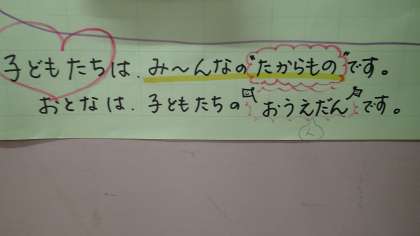 子どもたちは、み〜んなの"たからもの"です。
おとなは、子どもたちの"おうえだん"です。
ん